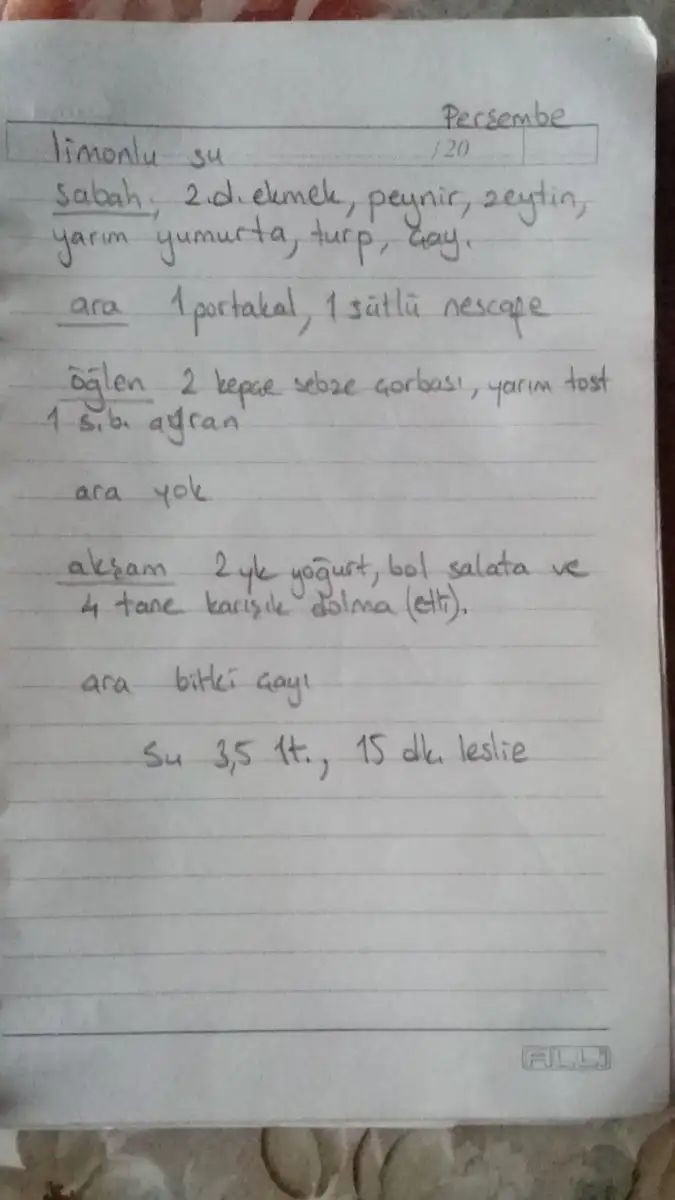 Perşembe
limonlu su /20
sabah, 2.d. ekmek, peynir, zeytin,
yarım yumurta, turp, çay.
ara 1 portakal, 1 sütlü nescape
öğlen 2 kepçe sebze çorbası, yarım tost
1 s.b. ayran
ara yok
akşam 2 yk yoğurt, bol salata ve
4 tane karışık dolma (etli).
ara bitki çayı
Su 3,5 lt., 15 dk. leslie
ALLİ